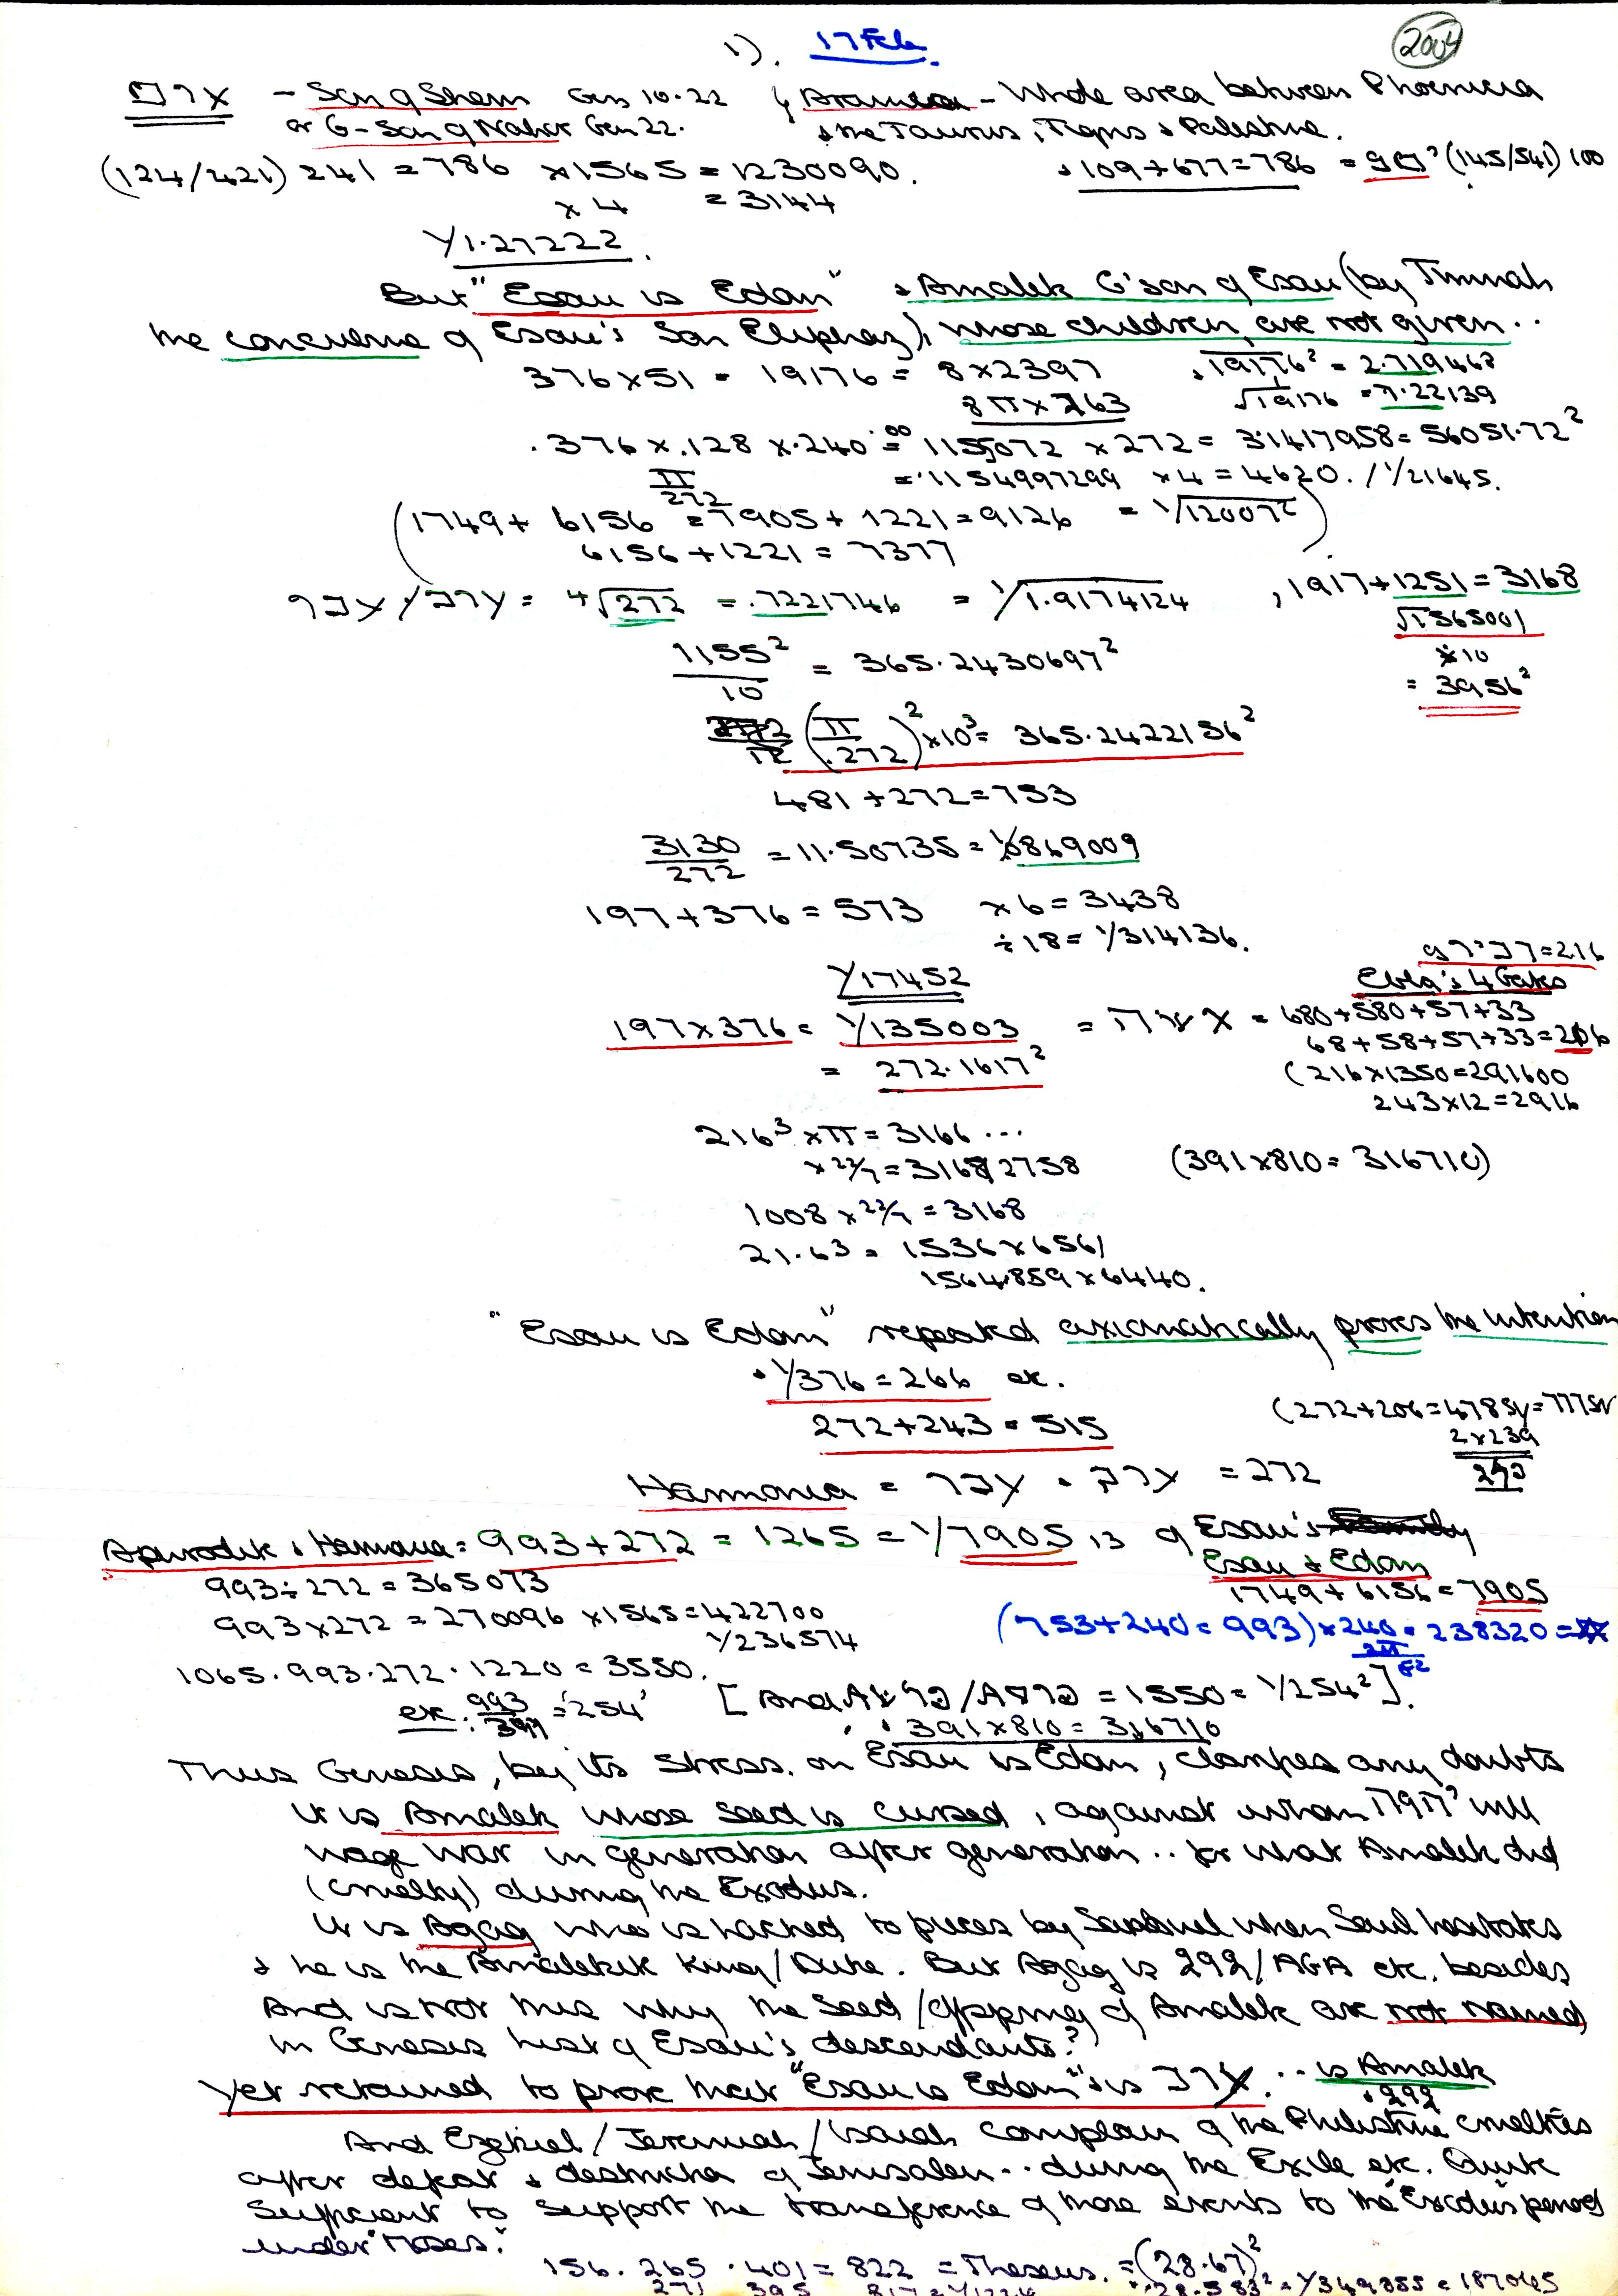 1). 17 Feb. 2004
- Son of Shem Gen 10.22 & Aramea - Whole area between Phoenicia
or G-Son of Nahor Gen 22. & the Taurus, Tigris & Palestine.
(124/421) 241 = 786 × 1565 = 1230090. 109 + 677 = 786 = (145/541) 100
× 4 = 3144
1/1.27222.
But "Esau is Edom" & Amalek G'son of Esau (by Timnah
the concubine of Esau's Son Eliphaz), whose children are not given..
376 × 51 = 19176 = 8 × 2397 19176² = 2.719468
8π × 763 √19176 = 7.22139
.376 × .128 × .240 = 1155072 × 272 = 31417958 = 56051.72²
π/272 = .1154997299 × 4 = 4620. / 1/21645.
(1749 + 6156 = 7905 + 1221 = 9126 = 1/√12007²)
6156 + 1221 = 7377
= 4√272 = .7221746 = 1/√1.9174124 , 1917 + 1251 = 3168
√1565001
1155²/10 = 365.2430697² × 10
= 3956²
(π/.272)² × 10³ = 365.2422156²
481 + 272 = 753
3130/272 = 11.50735 = 1/869009
197 + 376 = 573 × 6 = 3438
÷ 18 = 1/314136.
= 216
1/17452 Ebla's 4 Gates
197 × 376 = 1/135003 = 680 + 580 + 57 + 33
68 + 58 + 57 + 33 = 216
= 272.1617² (216 × 1350 = 291600
243 × 12 = 2916
216³ × π = 3166 ...
× 22/7 = 316712758 (391 × 810 = 316710)
1008 × 22/7 = 3168
21.6³ = 1536 × 6561
1564.859 × 6440.
"Esau is Edom" repeated axiomatically proves the intention
& 1/376 = 266 etc.
272 + 243 = 515 (272 + 206 = 478
2 × 239
Harmonia = = 272 292
Aphrodite & Harmonia = 993 + 272 = 1265 = 1/7905 is of Esau's
Esau & Edom
993 ÷ 272 = 365073 1749 + 6156 = 7905
993 × 272 = 270096 × 1565 = 422700 (753 + 240 = 993) × 240 = 238320 =
1/236574
1065 . 993 . 272 . 1220 = 3550.
etc: 993/391 = '254' = 1550 = 1/254²].
391 × 810 = 316710
Thus Genesis, by its stress. on Esau is Edom, clamps any doubts
it is Amalek whose seed is cursed, against whom will
wage war in generation after generation.. for what Amalek did
(cruelty) during the Exodus.
It is Agag who is hacked to pieces by Samuel when Saul hesitates
& he is the Amalekite King/Duke. But Agag is 292/AGA etc. besides
And is not this why the seed/offspring of Amalek are not named
in Genesis list of Esau's descendants?
Yet retained to prove that "Esau is Edom" & is .. is Amalek
& 292
And Ezekiel/Jeremiah/Isaiah complain of the Philistine cruelties
after defeat & destruction of Jerusalem.. during the Exile etc. Quite
sufficient to support the transference of those events to the "Exodus" period
under "Moses".
156 . 265 . 401 = 822 = Theseus. = (28.67)²
271 395 28.583² = 1/349855 = 187065